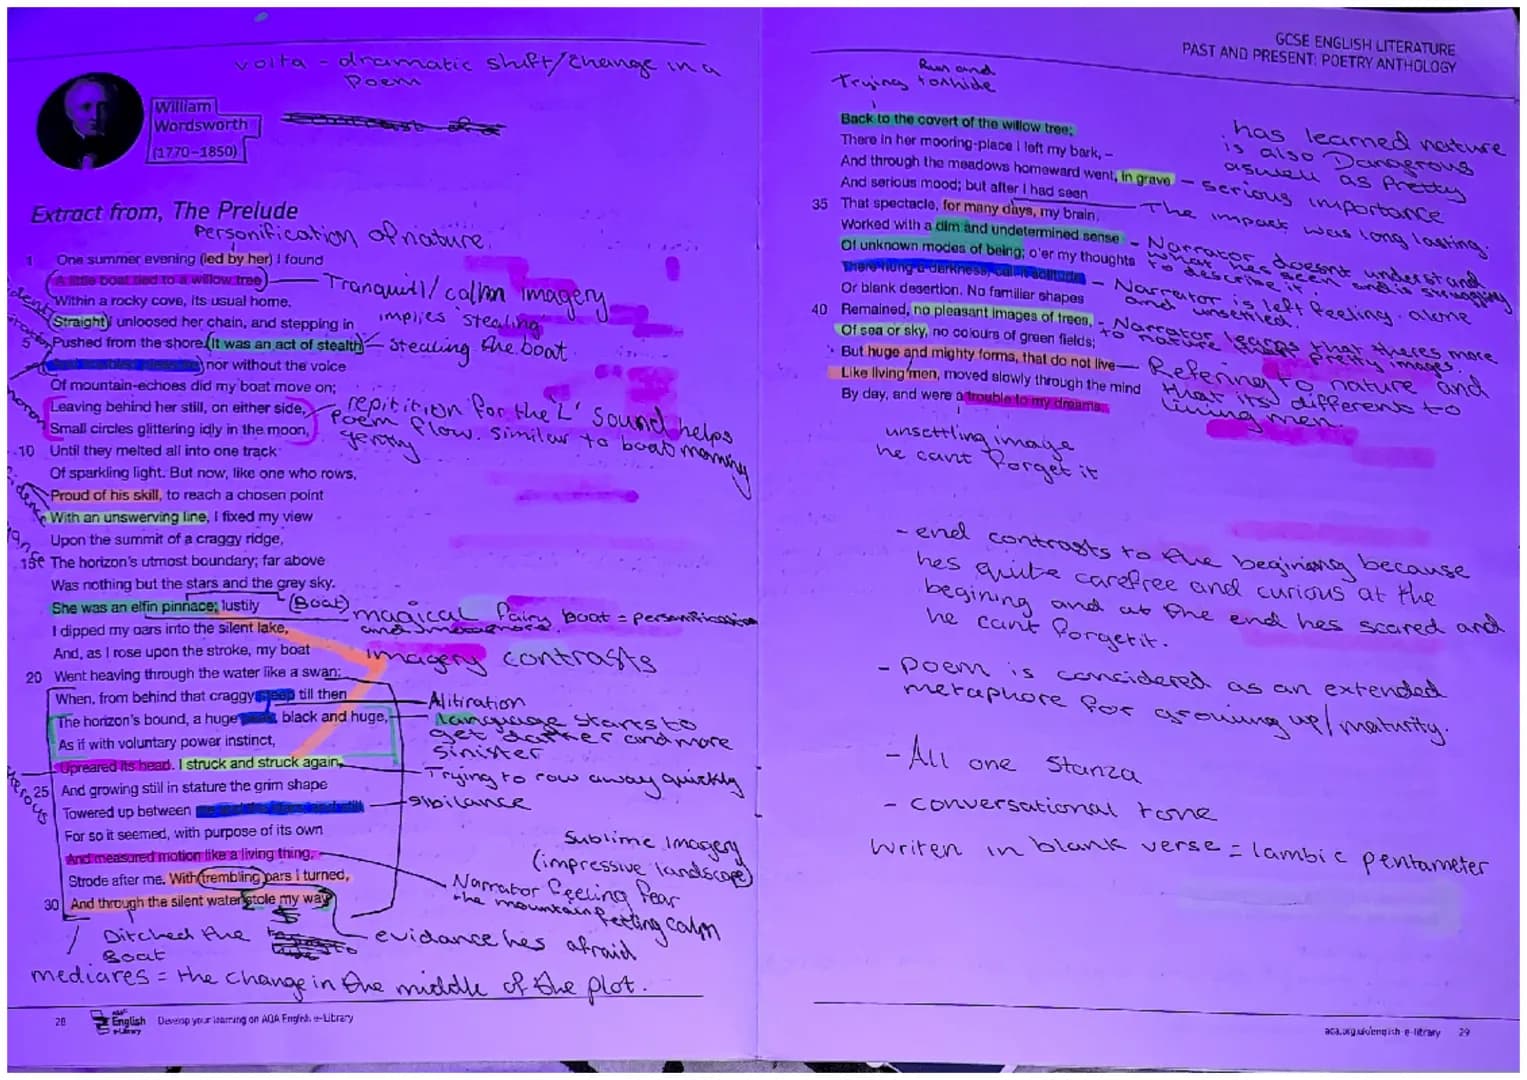 volta - dramatic shift/change in a
Poem
William
Wordsworth
(1770–1850)
Extract from, The Prelude
Personification of nature.
1 One summer evening (led by her) I found
A little boat tied to a willow tree
Tranquill/calm Imagery
Within a rocky cove, its usual home.
Straight I unloosed her chain, and stepping in
implies 'stealing'
5 Pushed from the shore. It was an act of stealth
stealing the boat.
nor without the voice
Of mountain-echoes did my boat move on;
Leaving behind her still, on either side,
Small circles glittering idly in the moon,
repitition for the 'L' sound helps
poem flow. similar to boat
gently
10 Until they melted all into one track
Of sparkling light. But now, like one who rows,
Proud of his skill, to reach a chosen point
With an unswerving line, I fixed my view
Upon the summit of a craggy ridge,
15 The horizon's utmost boundary; far above
Was nothing but the stars and the grey sky.
She was an elfin pinnace; lustily
(Boat)
magical fairy boat = personification
I dipped my oars into the silent lake,
And, as I rose upon the stroke, my boat
imagery contrasts
20 Went heaving through the water like a swan;
When, from behind that craggy steep till then
Alitiration
The horizon's bound, a huge peak, black and huge,
language starts to
get darker and more
sinister
As if with voluntary power instinct,
Upreared its head. I struck and struck again,
Trying to row away quickly
25 And growing still in stature the grim shape
Towered up between me and the stars, and still,
sibilance
For so it seemed, with purpose of its own
And measured motion like a living thing,
Sublime Imagery
(impressive landscape)
Strode after me. With trembling oars I turned,
Narrator feeling fear
the mountain feeling calm
30 And through the silent water stole my way
Ditched the
Boat
evidance hes afraid
mediares = the change in the middle of the plot.
28
AQA
English
e-Library
Develop your learning on AQA English e-Library
GCSE ENGLISH LITERATURE
PAST AND PRESENT: POETRY ANTHOLOGY
Run and
Trying to hide
Back to the covert of the willow tree;
There in her mooring-place I left my bark, –
And through the meadows homeward went, in grave
And serious mood; but after I had seen
has learned nature
is also Dangerous
aswell as Pretty
serious importance
35 That spectacle, for many days, my brain
The impact was long lasting.
Worked with a dim and undetermined sense
Of unknown modes of being; o'er my thoughts
Narrator doesnt understand
what hes seen and is struggling
to describe it.
There hung a darkness, call it solitude
Or blank desertion. No familiar shapes
Narrator is left feeling alone
and unsettled.
40 Remained, no pleasant images of trees,
Of sea or sky, no colours of green fields;
Narrator learns that theres more
to nature than pretty images.
But huge and mighty forms, that do not live
Like living men, moved slowly through the mind
Refering to nature and
that its different to
living men.
By day, and were a trouble to my dreams.
unsettling image
he cant forget it
- end contrasts to the begining because
hes quite carefree and curious at the
begining and at the end hes scared and
he cant forget it.
- Poem is considered as an extended
metaphore for growing up/maturity.
- All one Stanza
- conversational tone
writen in blank verse = Iambic pentameter
aqa.org.uk/english-e-library 29